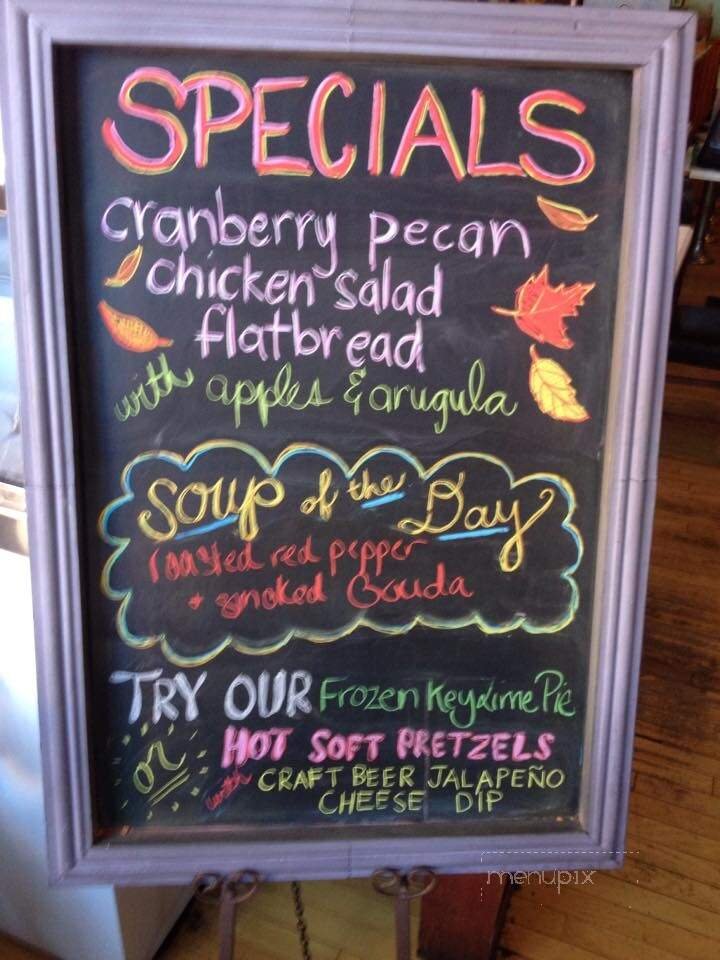 SPECIALS
cranberry pecan
chicken salad
flatbread
with apples & arugula
Soup of the Day
roasted red pepper
+ smoked Gouda
TRY OUR Frozen Key Lime Pie
or HOT SOFT PRETZELS
with CRAFT BEER JALAPEÑO
CHEESE DIP
menupix